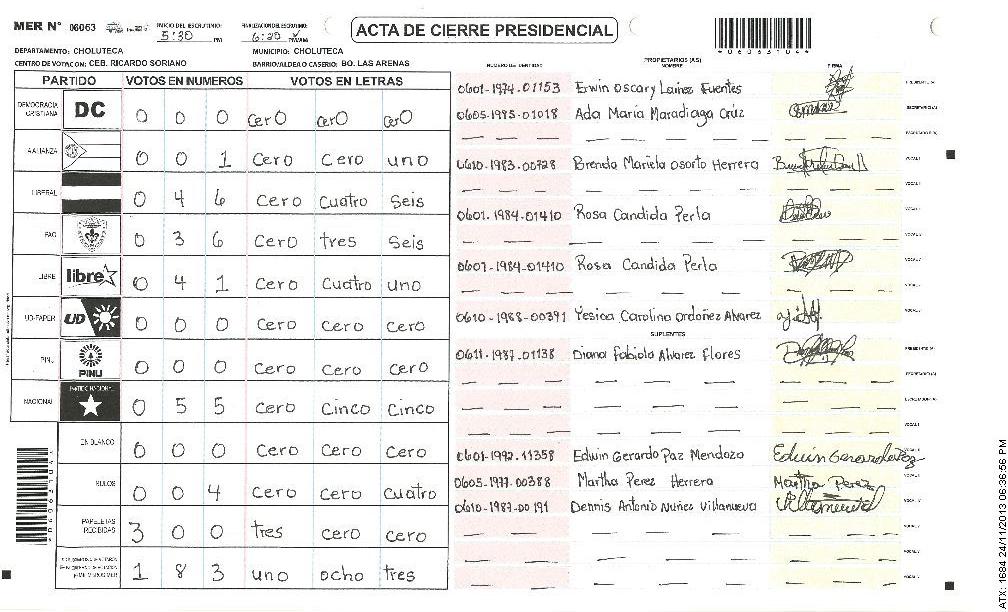 MER N° 06063
INICIO DEL ESCRUTINIO: 5:30 PM
FINALIZACION DEL ESCRUTINIO: 6:20 PM/AM
ACTA DE CIERRE PRESIDENCIAL
DEPARTAMENTO: CHOLUTECA
MUNICIPIO: CHOLUTECA
CENTRO DE VOTACION: CEB. RICARDO SORIANO
BARRIO/ALDEA O CASERIO: BO. LAS ARENAS
PARTIDO VOTOS EN NUMEROS VOTOS EN LETRAS
DEMOCRACIA CRISTIANA DC 0 0 0 cerO cerO cerO
AALIANZA 0 0 1 cero cero uno
LIBERAL 0 4 6 cero cuatro seis
FAO 0 3 6 cero tres seis
LIBRE libre 0 4 1 cero cuatro uno
UD-FAPER UD 0 0 0 cero cero cero
PINU PINU 0 0 0 cero cero cero
NACIONAL 0 5 5 cero cinco cinco
EN BLANCO 0 0 0 cero cero cero
NULOS 0 0 4 cero cero cuatro
PAPELETAS RECIBIDAS 3 0 0 tres cero cero
1 8 3 uno ocho tres
PROPIETARIOS (AS)
NUMERO DE IDENTIDAD NOMBRE FIRMA
0601-1974-01153 Erwin oscary Lainez Fuentes PRESIDENTE (A)
0605-1985-01018 Ada Maria Maradiaga Crúz SECRETARIO(A)
0610-1983-00728 Brenda Mariela osorto Herrera VOCAL I
0601-1984-01410 Rosa Candida Perla
0601-1984-01410 Rosa Candida Perla
0610-1988-00391 Yesica Carolina ordoñez Alvarez
SUPLENTES
0611-1987-01138 Diana Fabiola Alvarez Flores PRESIDENTE (A)
SECRETARIO(A)
0601-1992-11358 Edwin Gerardo Paz Mendoza Edwin Gerardo Paz
0605-1977-00388 Martha Perez Herrera Martha Perez
0610-1987-00191 Dennis Antonio Nuñez Villanueva
ATX: 1684 24/11/2013 06:36:56 PM